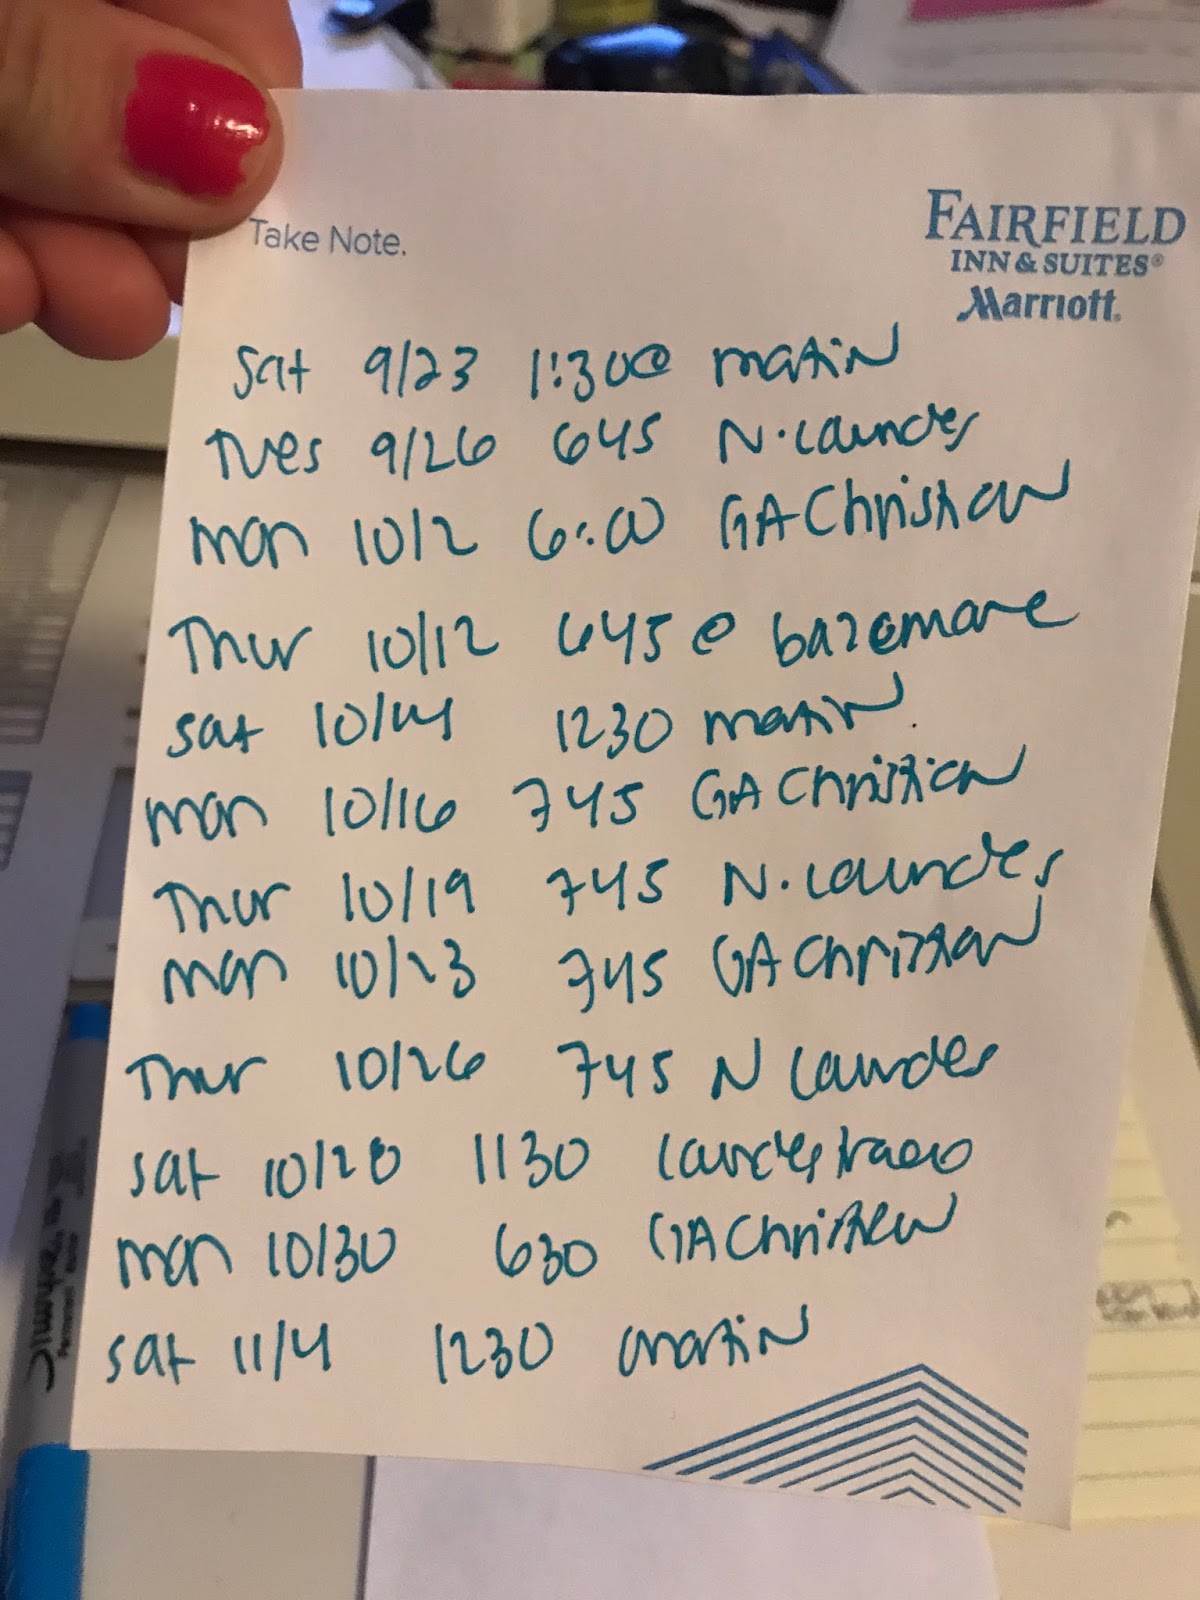 Take Note.
FAIRFIELD
INN & SUITES®
Marriott.
Sat 9/23 1:30@ martin
Tues 9/26 645 N. Landes
mon 10/2 6:00 GA Christian
Thur 10/12 645 @ bazemore
sat 10/14 1230 martin
mon 10/16 745 GA Christian
Thur 10/19 745 N. Landes
mon 10/23 745 GA Christian
Thur 10/26 745 N Landes
sat 10/28 1130
mon 10/30 630 GA Christian
sat 11/4 1230 martin